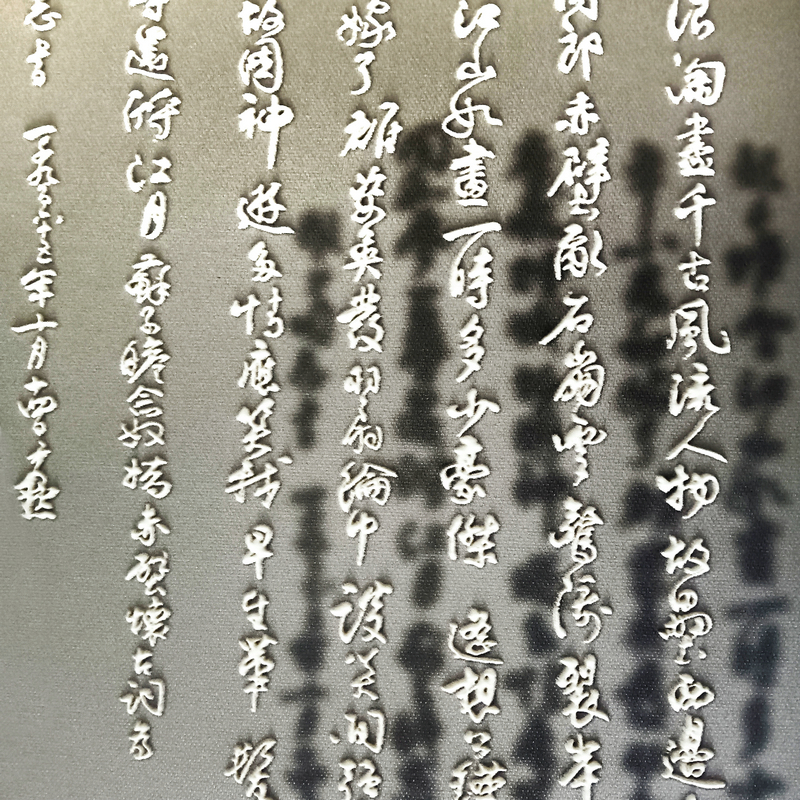 浪淘盡千古風流人物故壘西邊
周郎赤壁亂石崩雲驚濤裂岸
江山如畫一時多少豪傑遙想公瑾
嫁了雄姿英發羽扇綸巾談笑間強
故國神遊多情應笑我早生華髮
還酹江月蘇子瞻念奴嬌赤壁懷古詞
一九年十月十四日